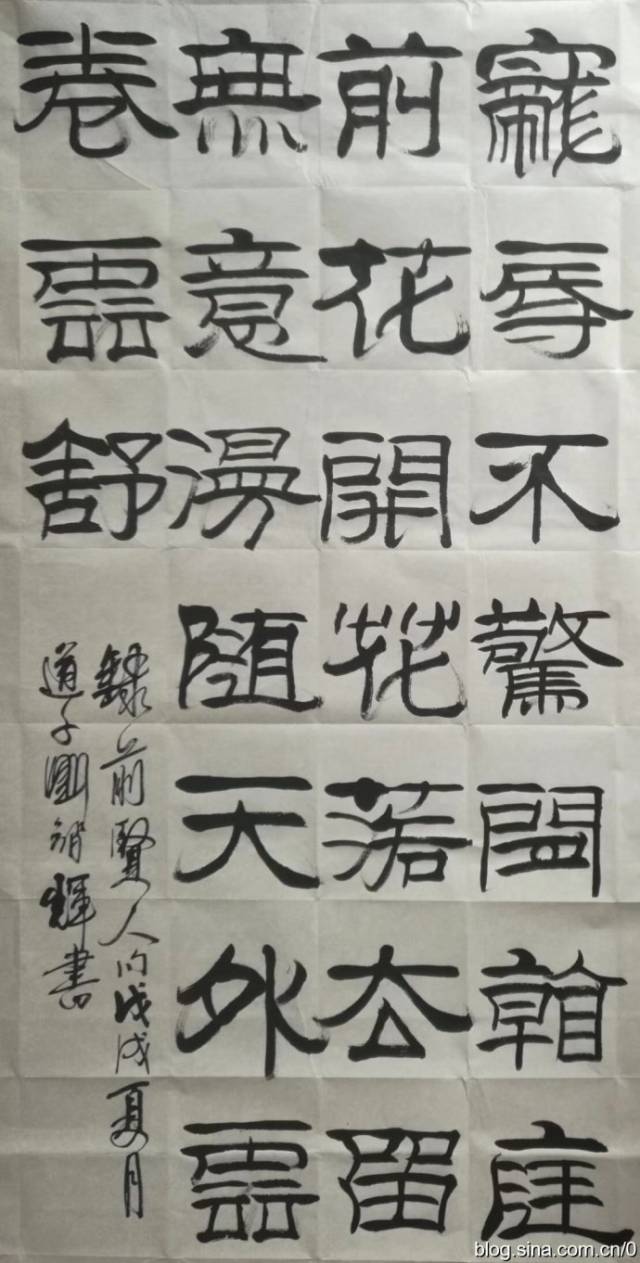 寵辱不驚閒看庭
前花開花落去留
無意漫随天外雲
卷雲舒
隸前賢人句戊戌夏月
道子輝書
blog.sina.com.cn/0